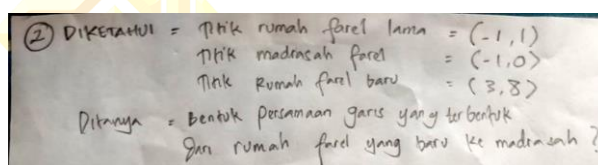 ② DIKETAHUI = Titik rumah farel lama = (-1,1)
Titik madrasah farel = (-1,0)
Titik Rumah farel baru = (3,8)
Ditanya = Bentuk persamaan garis yang terbentuk
dari rumah farel yang baru ke madrasah?